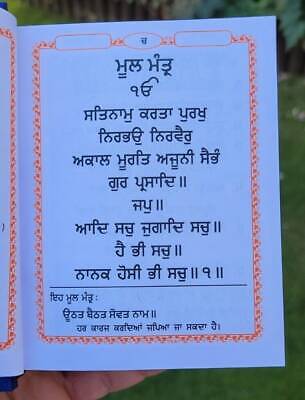 ੳ
ਮੂਲ ਮੰਤ੍ਰ
ੴ
ਸਤਿਨਾਮੁ ਕਰਤਾ ਪੁਰਖੁ
ਨਿਰਭਉ ਨਿਰਵੈਰੁ
ਅਕਾਲ ਮੂਰਤਿ ਅਜੂਨੀ ਸੈਭੰ
ਗੁਰ ਪ੍ਰਸਾਦਿ॥
ਜਪੁ॥
ਆਦਿ ਸਚੁ ਜੁਗਾਦਿ ਸਚੁ॥
ਹੈ ਭੀ ਸਚੁ॥
ਨਾਨਕ ਹੋਸੀ ਭੀ ਸਚੁ॥੧॥
ਇਹ ਮੂਲ ਮੰਤ੍ਰ:
ਊਠਤ ਬੈਠਤ ਸੋਵਤ ਨਾਮ॥
ਹਰ ਕਾਰਜ ਕਰਦਿਆਂ ਜਪਿਆ ਜਾ ਸਕਦਾ ਹੈ।